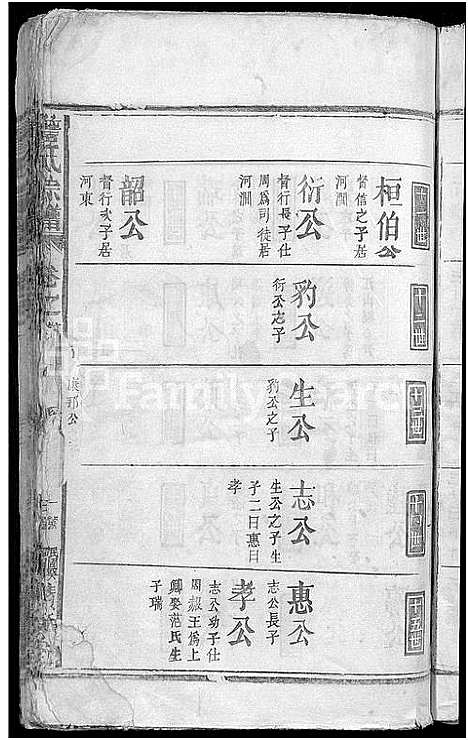 十一世
桓伯公
督信之子居
河澗
衍公
督行長子仕
周爲司徒居
河澗
韶公
督行次子居
河東
十二世
豹公
衍公之子
十三世
生公
豹公之子
十四世
志公
生公之子生
子二曰惠曰
孝
十五世
惠公
志公長子
孝公
志公幼子仕
周赧王爲上
卿娶范氏生
子瑞
氏宗譜
卷之